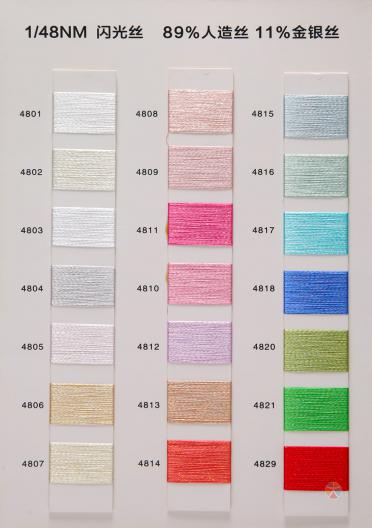 1/48NM 闪光丝 89%人造丝 11%金银丝
4801
4802
4803
4804
4805
4806
4807
4808
4809
4811
4810
4812
4813
4814
4815
4816
4817
4818
4820
4821
4829